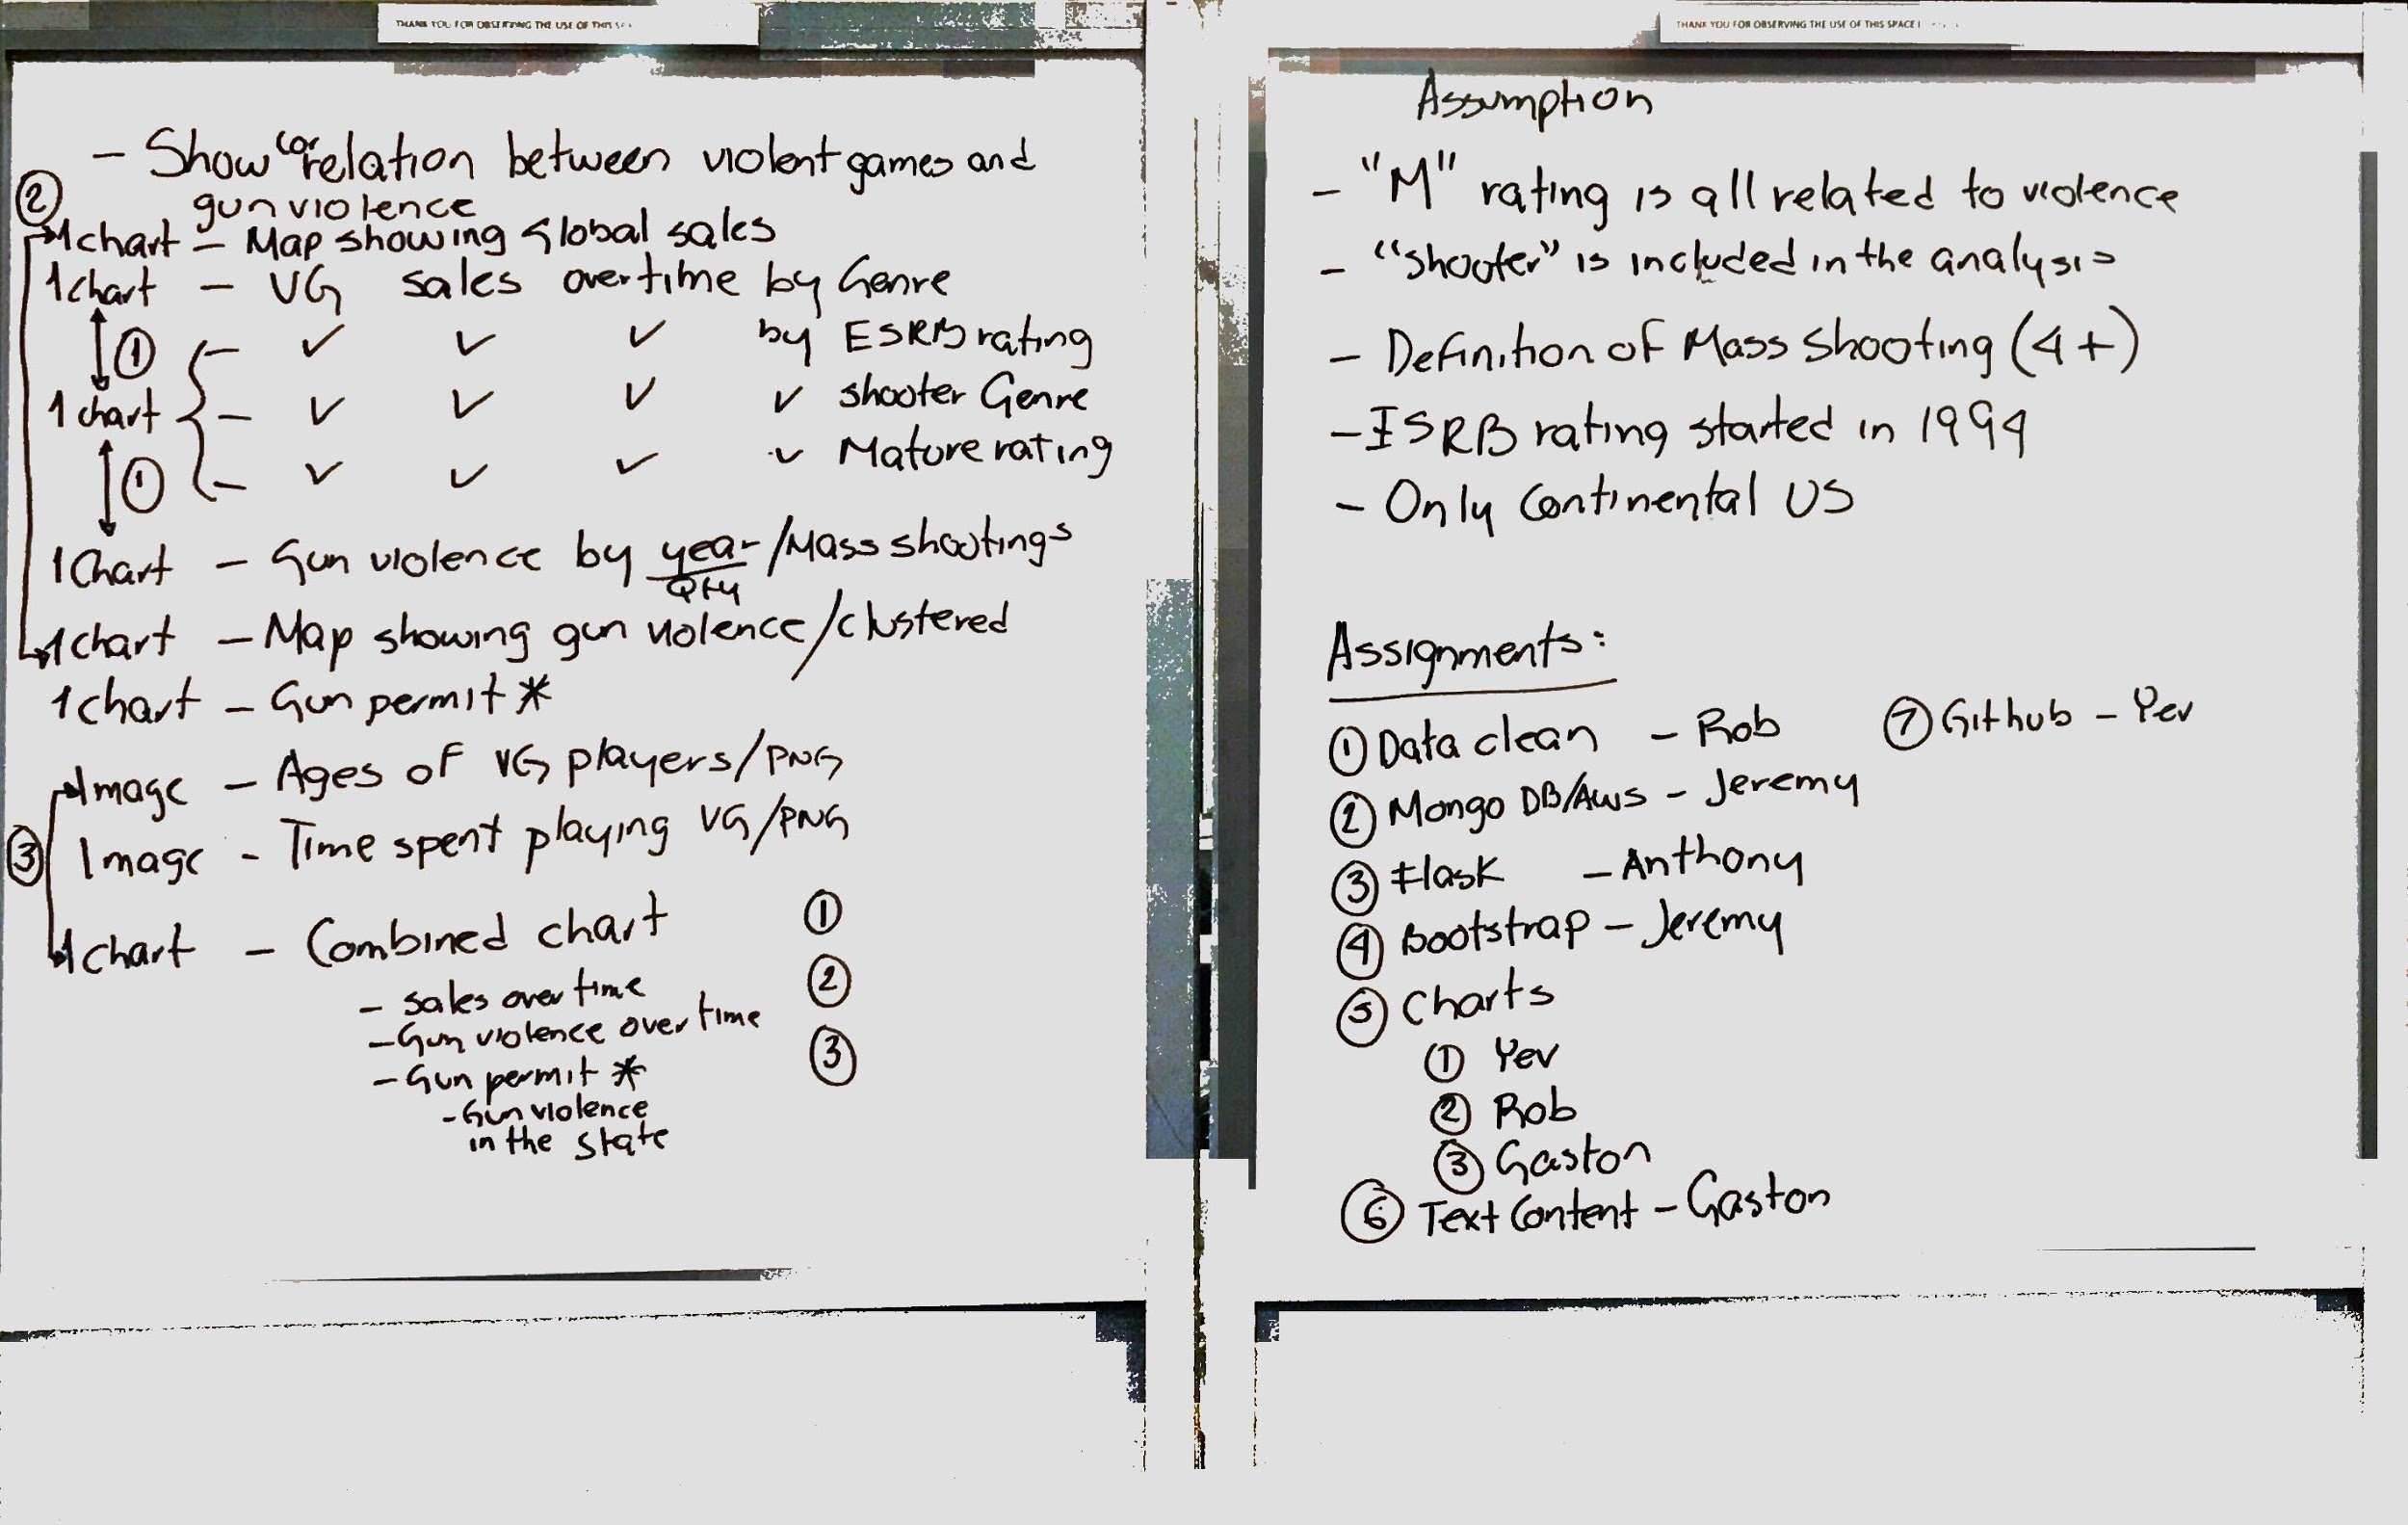 THANK YOU FOR OBSERVING THE USE OF THIS
- Show correlation between violent games and
gun violence
②
1 chart - Map showing Global sales
1 chart - VG sales over time by Genre
① - ✓ ✓ ✓ by ESRB rating
1 chart - ✓ ✓ ✓ ✓ shooter Genre
① - ✓ ✓ ✓ ✓ Mature rating
1 Chart - Gun violence by year/Mass shootings
Qty
1 chart - Map showing gun violence/clustered
1 chart - Gun permit *
Image - Ages of VG players/PNG
③ Image - Time spent playing VG/PNG
1 chart - Combined chart ①
- sales over time ②
- Gun violence over time
- Gun permit * ③
- Gun violence
in the state
THANK YOU FOR OBSERVING THE USE OF THIS SPACE
Assumption
- "M" rating is all related to violence
- "shooter" is included in the analysis
- Definition of Mass Shooting (4+)
- ESRB rating started in 1994
- Only Continental US
Assignments:
① Data clean - Rob ⑦ Github - Yev
② Mongo DB/AWS - Jeremy
③ Flask - Anthony
④ Bootstrap - Jeremy
⑤ Charts
① Yev
② Rob
③ Gaston
⑥ Text Content - Gaston